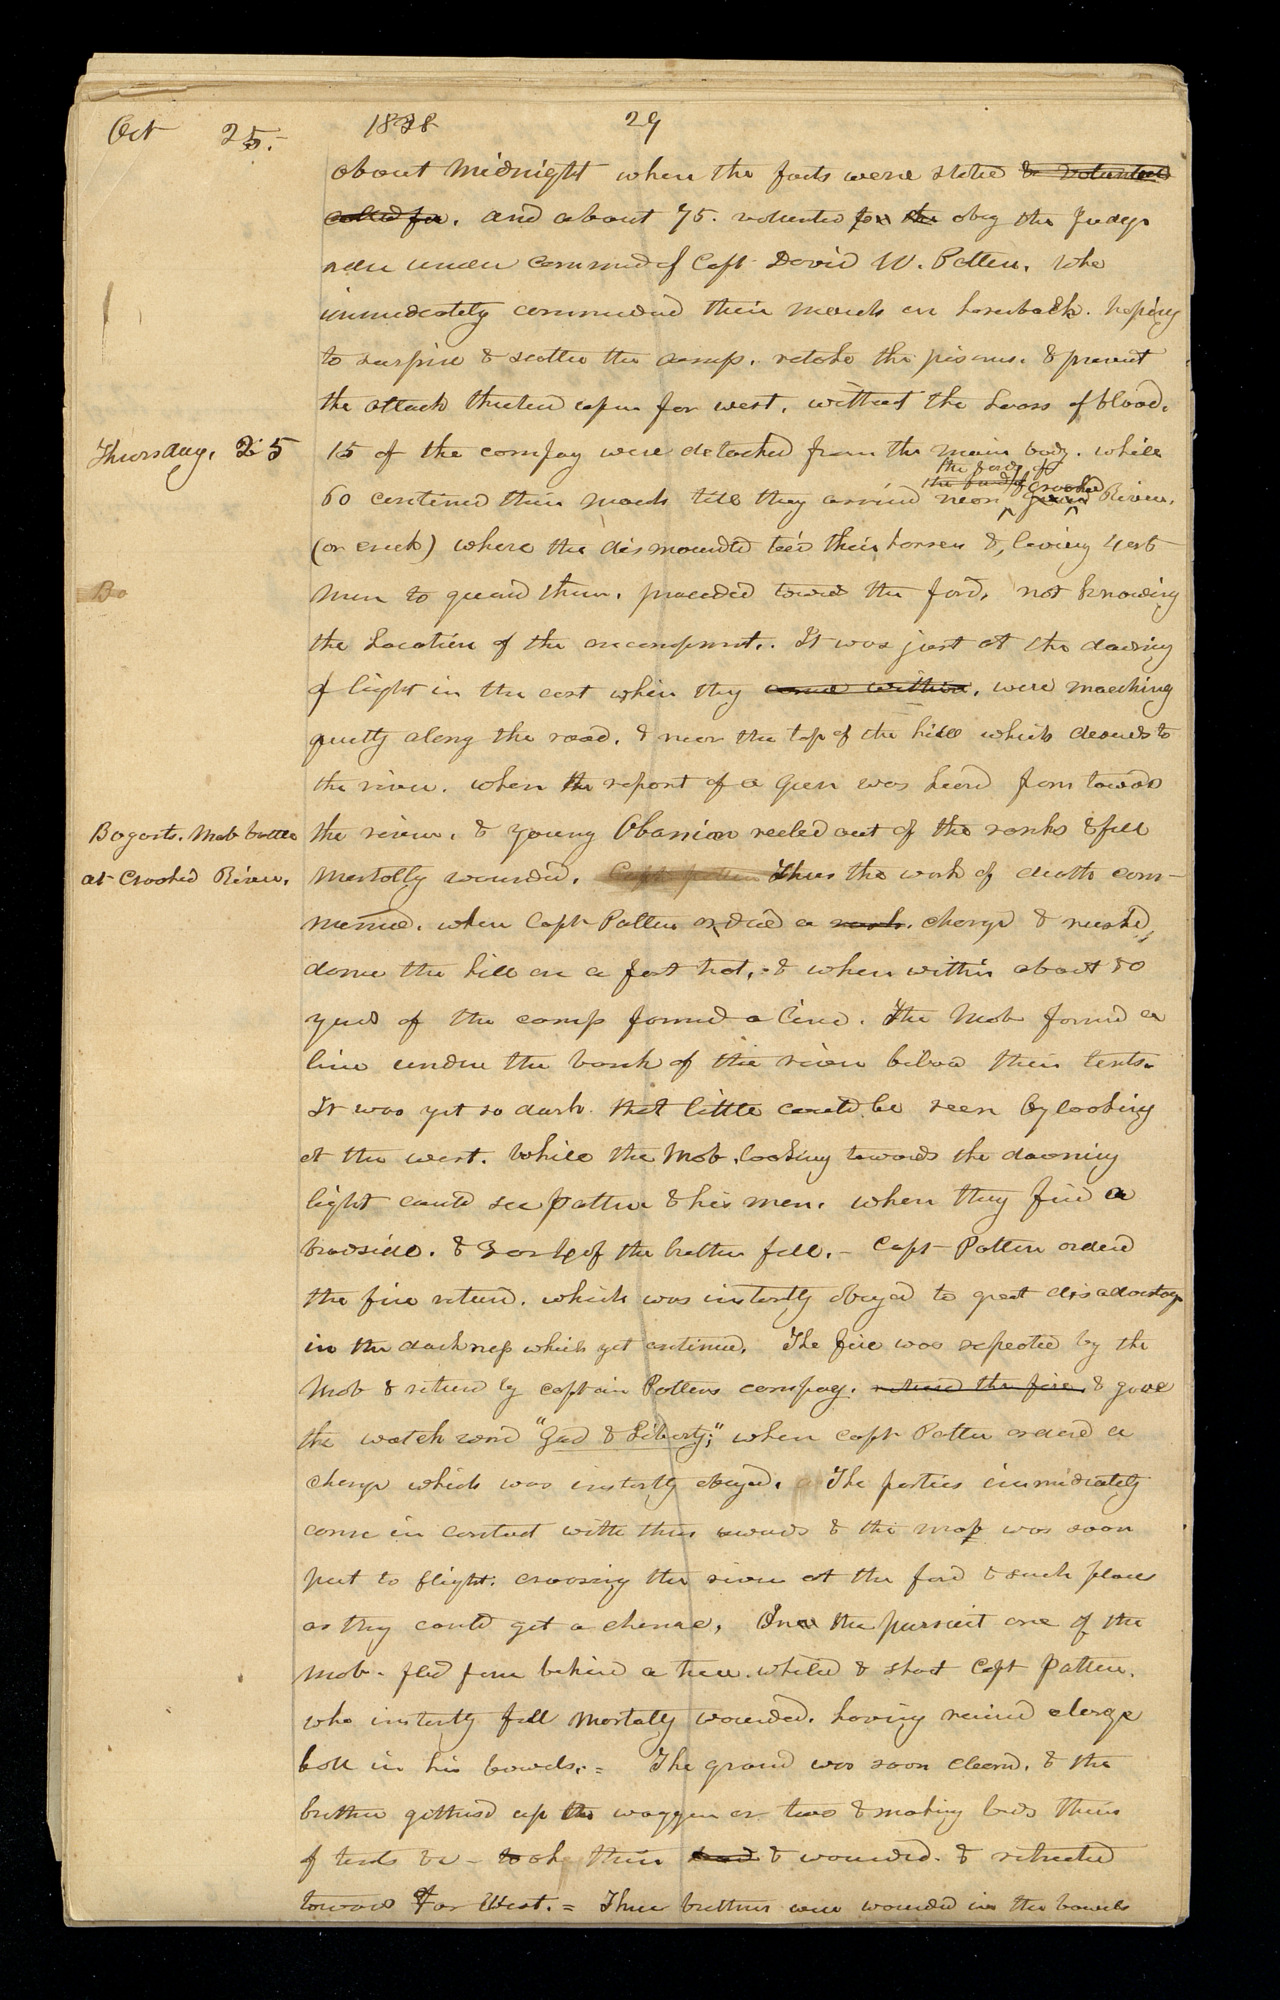 Oct 25. 1838 29
about Midnight when the facts were stated & volunteers
called for. and about 75. volunteed for the obey the Judge
order under commnd of Capt David W. Patten. who
immediately commended their march on horseback. hoping
to surprise & scatter the camp. retake the prisoners. & prevent
the attack threatend upon far west. without the Loss of blood.
Thursday. 25 15 of the compay were detached from the main body. while
the ford of
the ford of crooked
60 contined their march till they arrived near River.
(or creek) where the dismounted tied their horses & leaving 4 or 5
Do men to guard them. proceeded toward the ford. not knowing
the Location of the encampmnt. It was just at the dawing
of light in the east when they came within, were marching
quietly along the road. & near the top of the hill which desends to
the river. when the report of a gun was heard from towards
Bogarts. Mob battle the river. & young Obanion reeled out of the ranks & fell
at Crooked River. Mortally wounded. Capt patten Thus the work of death com-
menced. when Capt Patten ordered a rush. charge & rushed
down the hill on a fast trot. & when within about 50
yards of the camp formed a line. The Mob formed a
line under the bank of the river below their tents.
It was yet so dark that little could be seen by looking
at the west. while the Mob. looking towards the dawning
light could see patten & his men. when they fired a
broadside. & 3 or 4 of the brethen fell. - Capt Patten orderd
the fire returnd. which was instantly obeyed to great disadvantage
in the darkness which yet continued. The fire was repeated by the
Mob & returnd by Captain Pattens compay. returnd the fire & gave
the watch word "God & Liberty;" when Capt Patten ordered a
charge which was instantly obeyed. The parties immidiately
came in contact with their swords & the mob was soon
put to flight. crossing the river at the ford & such places
as they could get a chance. In the pursuit one of the
mob- fled from behind a tree. wheled & shot Capt Patten.
who instantly fell Mortally wounded. having recived a large
ball in his bowels.= The ground was soon cleard. & the
brethen gatherd up the waggen or two & making beds therin
of tents &c - took their dead & wounded. & retreated
toward Far West. = Three brethren were wounded in the bowels